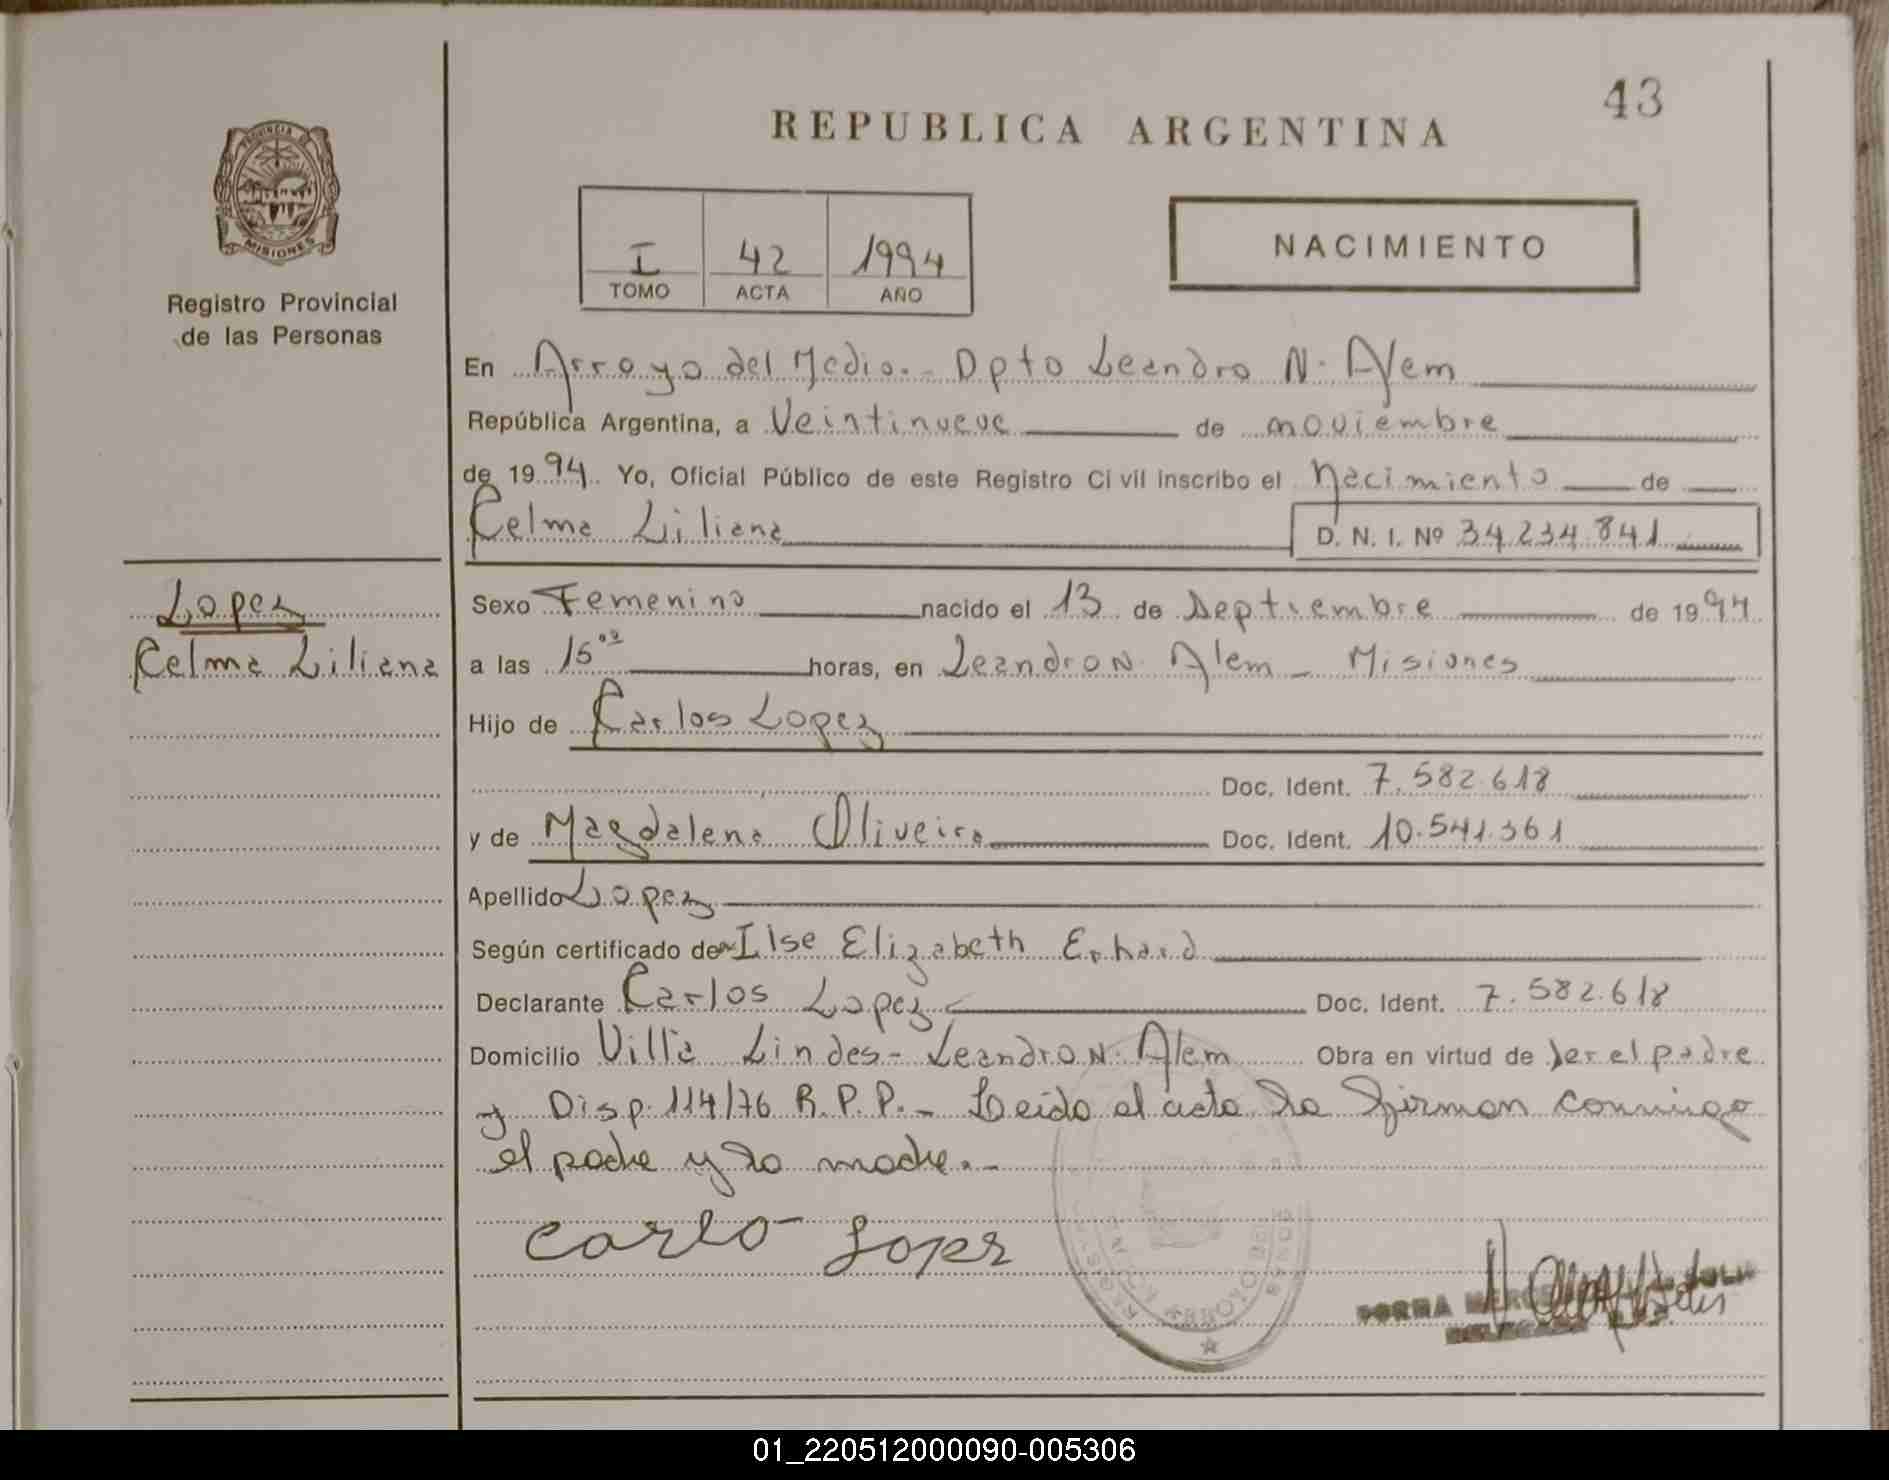 43
REPUBLICA ARGENTINA
PROVINCIA DE
MISIONES
Registro Provincial
de las Personas
I 42 1994
TOMO ACTA AÑO
NACIMIENTO
En Arroyo del Medio.- Dpto Leandro N. Alem
República Argentina, a Veintinueve de noviembre
de 1994 Yo, Oficial Público de este Registro Civil inscribo el Nacimiento de
Celma Liliana D. N. I. Nº 34.234.841
Lopez
Celma Liliana
Sexo Femenino nacido el 13 de Septiembre de 1994
a las horas, en Leandro N. Alem - Misiones
Hijo de Carlos Lopez
Doc. Ident. 7.582.618
y de Magdalena Oliveira Doc. Ident. 10.541.361
Apellido Lopez
Según certificado de Ilse Elizabeth
Declarante Carlos Lopez Doc. Ident. 7.582.618
Domicilio Villa Lindes - Leandro N. Alem Obra en virtud de ser el padre
y Disp. 114/76 R.P.P.- Leido el acta la firman conmigo
el padre y la madre.-
Carlo Lopez
01_220512000090-005306